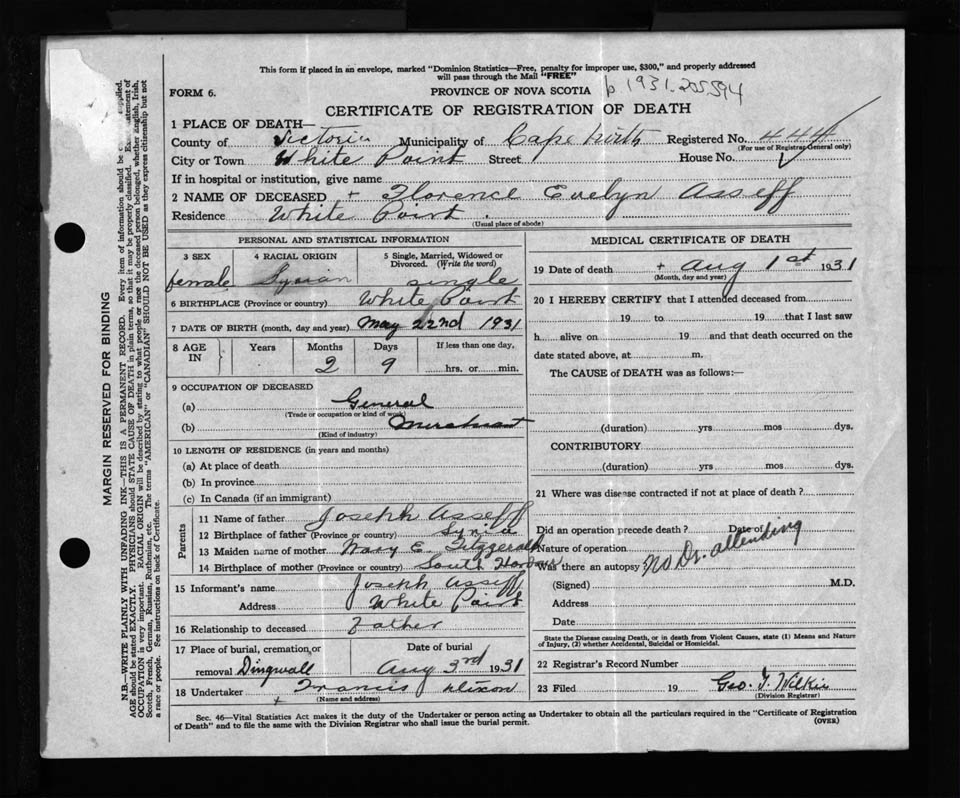 This form if placed in an envelope, marked "Dominion Statistics—Free, penalty for improper use, $300," and properly addressed
will pass through the Mail "FREE"
FORM 6.
PROVINCE OF NOVA SCOTIA
1931-205594
CERTIFICATE OF REGISTRATION OF DEATH
1 PLACE OF DEATH—
County of Victoria Municipality of Cape North Registered No. 444
(For use of Registrar General only)
City or Town White Point Street House No.
If in hospital or institution, give name
2 NAME OF DECEASED + Florence Evelyn Asseff
Residence White Point
(Usual place of abode)
PERSONAL AND STATISTICAL INFORMATION
3 SEX 4 RACIAL ORIGIN 5 Single, Married, Widowed or Divorced. (Write the word)
female Syrian single
6 BIRTHPLACE (Province or country) White Point
7 DATE OF BIRTH (month, day and year) May 22nd 1931
8 AGE IN Years Months Days If less than one day,
2 9 hrs. or min.
9 OCCUPATION OF DECEASED
(a) General
(Trade or occupation or kind of work)
(b) Merchant
(Kind of industry)
10 LENGTH OF RESIDENCE (in years and months)
(a) At place of death
(b) In province
(c) In Canada (if an immigrant)
Parents
11 Name of father Joseph Asseff
12 Birthplace of father (Province or country) Syria
13 Maiden name of mother Mary E. Fitzgerald
14 Birthplace of mother (Province or country) South Harbour
15 Informant's name Joseph Asseff
Address White Point
16 Relationship to deceased Father
17 Place of burial, cremation, or Date of burial
removal Dingwall Aug 3rd 1931
18 Undertaker + Francis Dixon
(Name and address)
MEDICAL CERTIFICATE OF DEATH
19 Date of death + Aug 1st 1931
(Month, day and year)
20 I HEREBY CERTIFY that I attended deceased from
19 to 19 that I last saw
h alive on 19 and that death occurred on the
date stated above, at m.
The CAUSE of DEATH was as follows:—
(duration) yrs mos dys.
CONTRIBUTORY
(duration) yrs mos dys.
21 Where was disease contracted if not at place of death?
Did an operation precede death? Date of
Nature of operation
Was there an autopsy No Dr. attending
(Signed) M.D.
Address
Date
State the Disease causing Death, or in death from Violent Causes, state (1) Means and Nature
of Injury, (2) whether Accidental, Suicidal or Homicidal.
22 Registrar's Record Number
23 Filed 19 Geo. J. Wilkie
(Division Registrar)
Sec. 46—Vital Statistics Act makes it the duty of the Undertaker or person acting as Undertaker to obtain all the particulars required in the "Certificate of Registration
of Death" and to file the same with the Division Registrar who shall issue the burial permit.
(OVER)
MARGIN RESERVED FOR BINDING
N.B.—WRITE PLAINLY WITH UNFADING INK—THIS IS A PERMANENT RECORD. Every item of information should be supplied.
AGE should be stated EXACTLY. PHYSICIANS should STATE CAUSE OF DEATH in plain terms, so that it may be properly classified. statement of
OCCUPATION is very important. RACIAL ORIGIN will be described by stating to what people or race the deceased person belonged, whether English, Irish,
Scotch, French, German, Russian, Ruthenian, etc. The terms "AMERICAN" or "CANADIAN" SHOULD NOT BE USED as they express citizenship but not
a race or people. See instructions on back of Certificate.